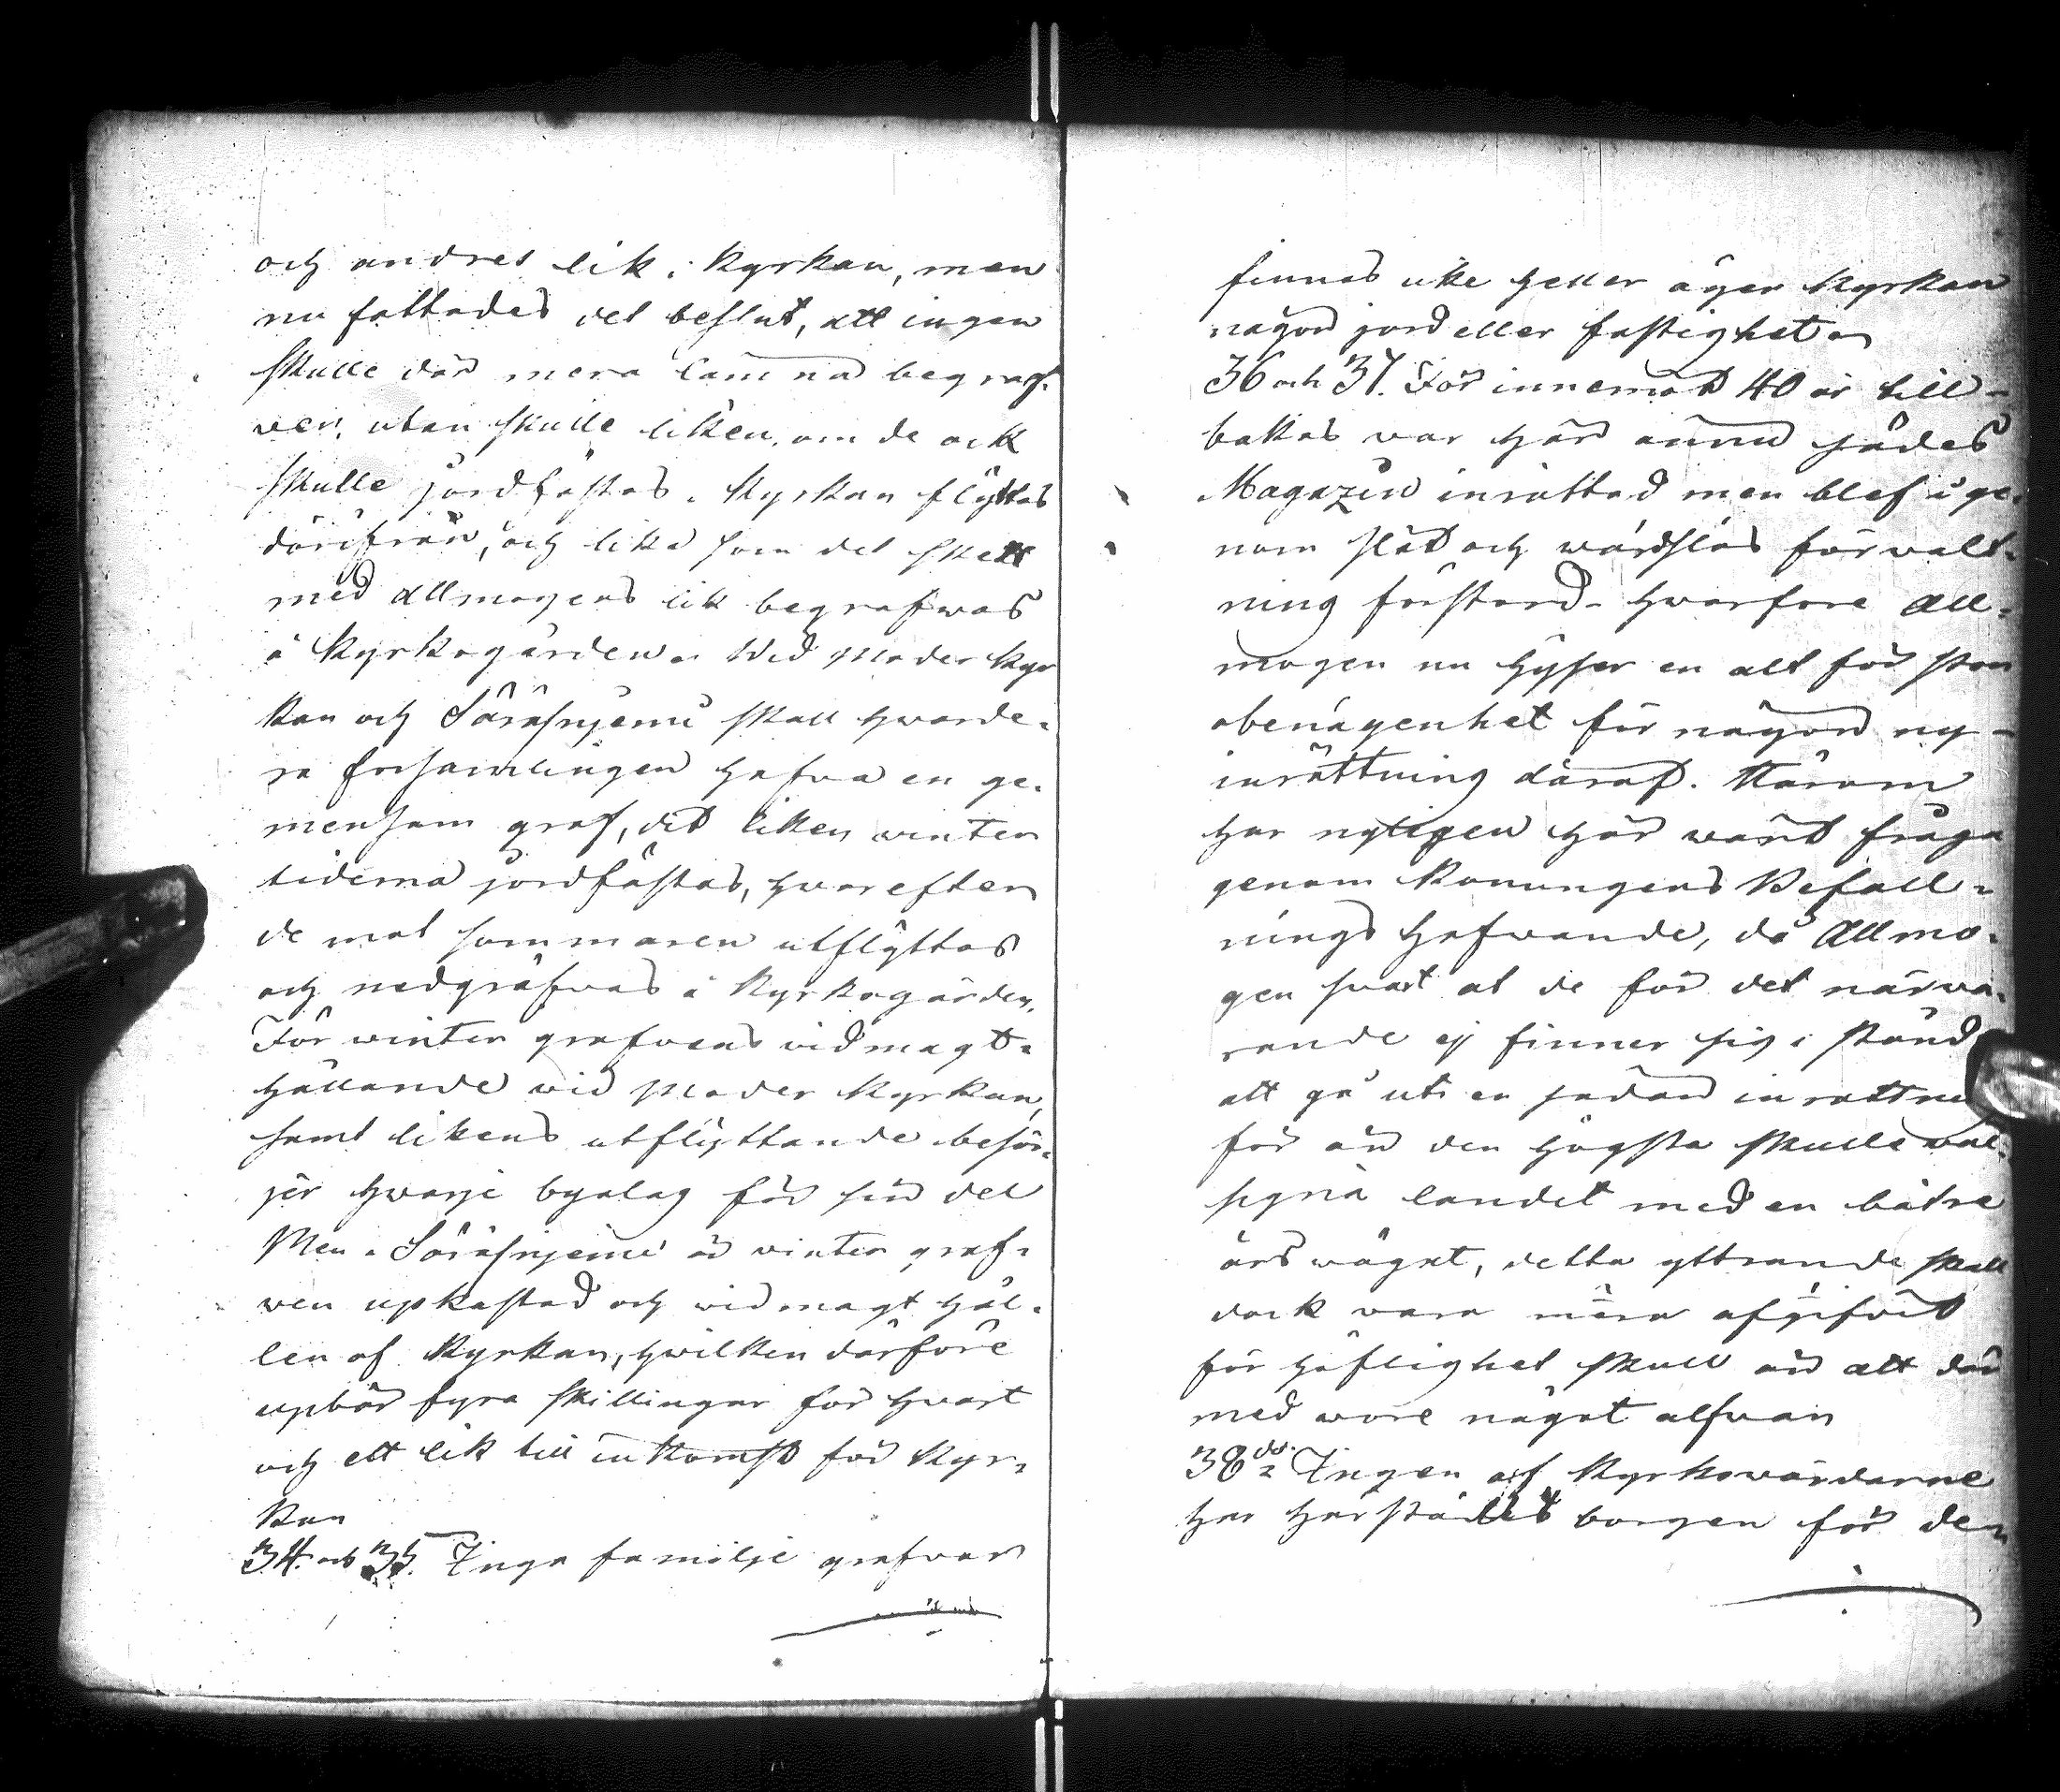 och andres lik i Kyrkan, men
nu fattades det beslut, att ingen
skulle där mera lämnas begraf-
ven, utan skulle liken, om de ock
skulle jordfästas i Kyrkan flyttas
därifrån, och lika som det skett
med allmogens lik begrafwas
å Kyrkogården. Wid Moder Kyr
kan och Söråsnjemi skall hwarde-
ra församlingen hafwa en ge-
mensam graf, dit liken winter
tiderna jordfästas, hwarefter
de mot sommaren utflyttas
och nedgräfwas å Kyrkogården.
För winter grafvens vidmagt-
hållande wid Moder Kyrkan,
samt likens utflyttande besör-
jer hwarje byalag för sin del
Men i Söråsnjemi är winter graf-
ven upkastad och widmagt hål-
len af Kyrkan, hwilken därföre
upbär fyra skillingar för hwart
och ett lik till inkomst för Kyr-
kan
34. och 35. Inga familje grafvar
finnas icke heller äger Kyrkan
någon jord eller fastighet
36 och 37. För innemot 40 år till-
bakas war här ännu sädes
Magazin inrättad men blef i ge-
nom slät och wårdslös förwalt-
ning förstörd. hwarfore All-
mogen nu hyser en alt för stor
obenägenhet för någon ny-
inrättning däraf. Härom
har nyligen här warit fråga
genom Konungens Befall-
nings Hafwande, då Allmo-
gen swart at de för det närwa-
rande ej finner sig i stånd
att gå uti en sådan inrättni
för än den högsta skulle wäl-
signa landet med en bätre
årswäxt, detta yttrande skall
dock vara mera afgifvit
för höflighet skull än att där
med wore något alfwar
38de. Ingen af Kyrkowärdarne
har härstädes borgen för den